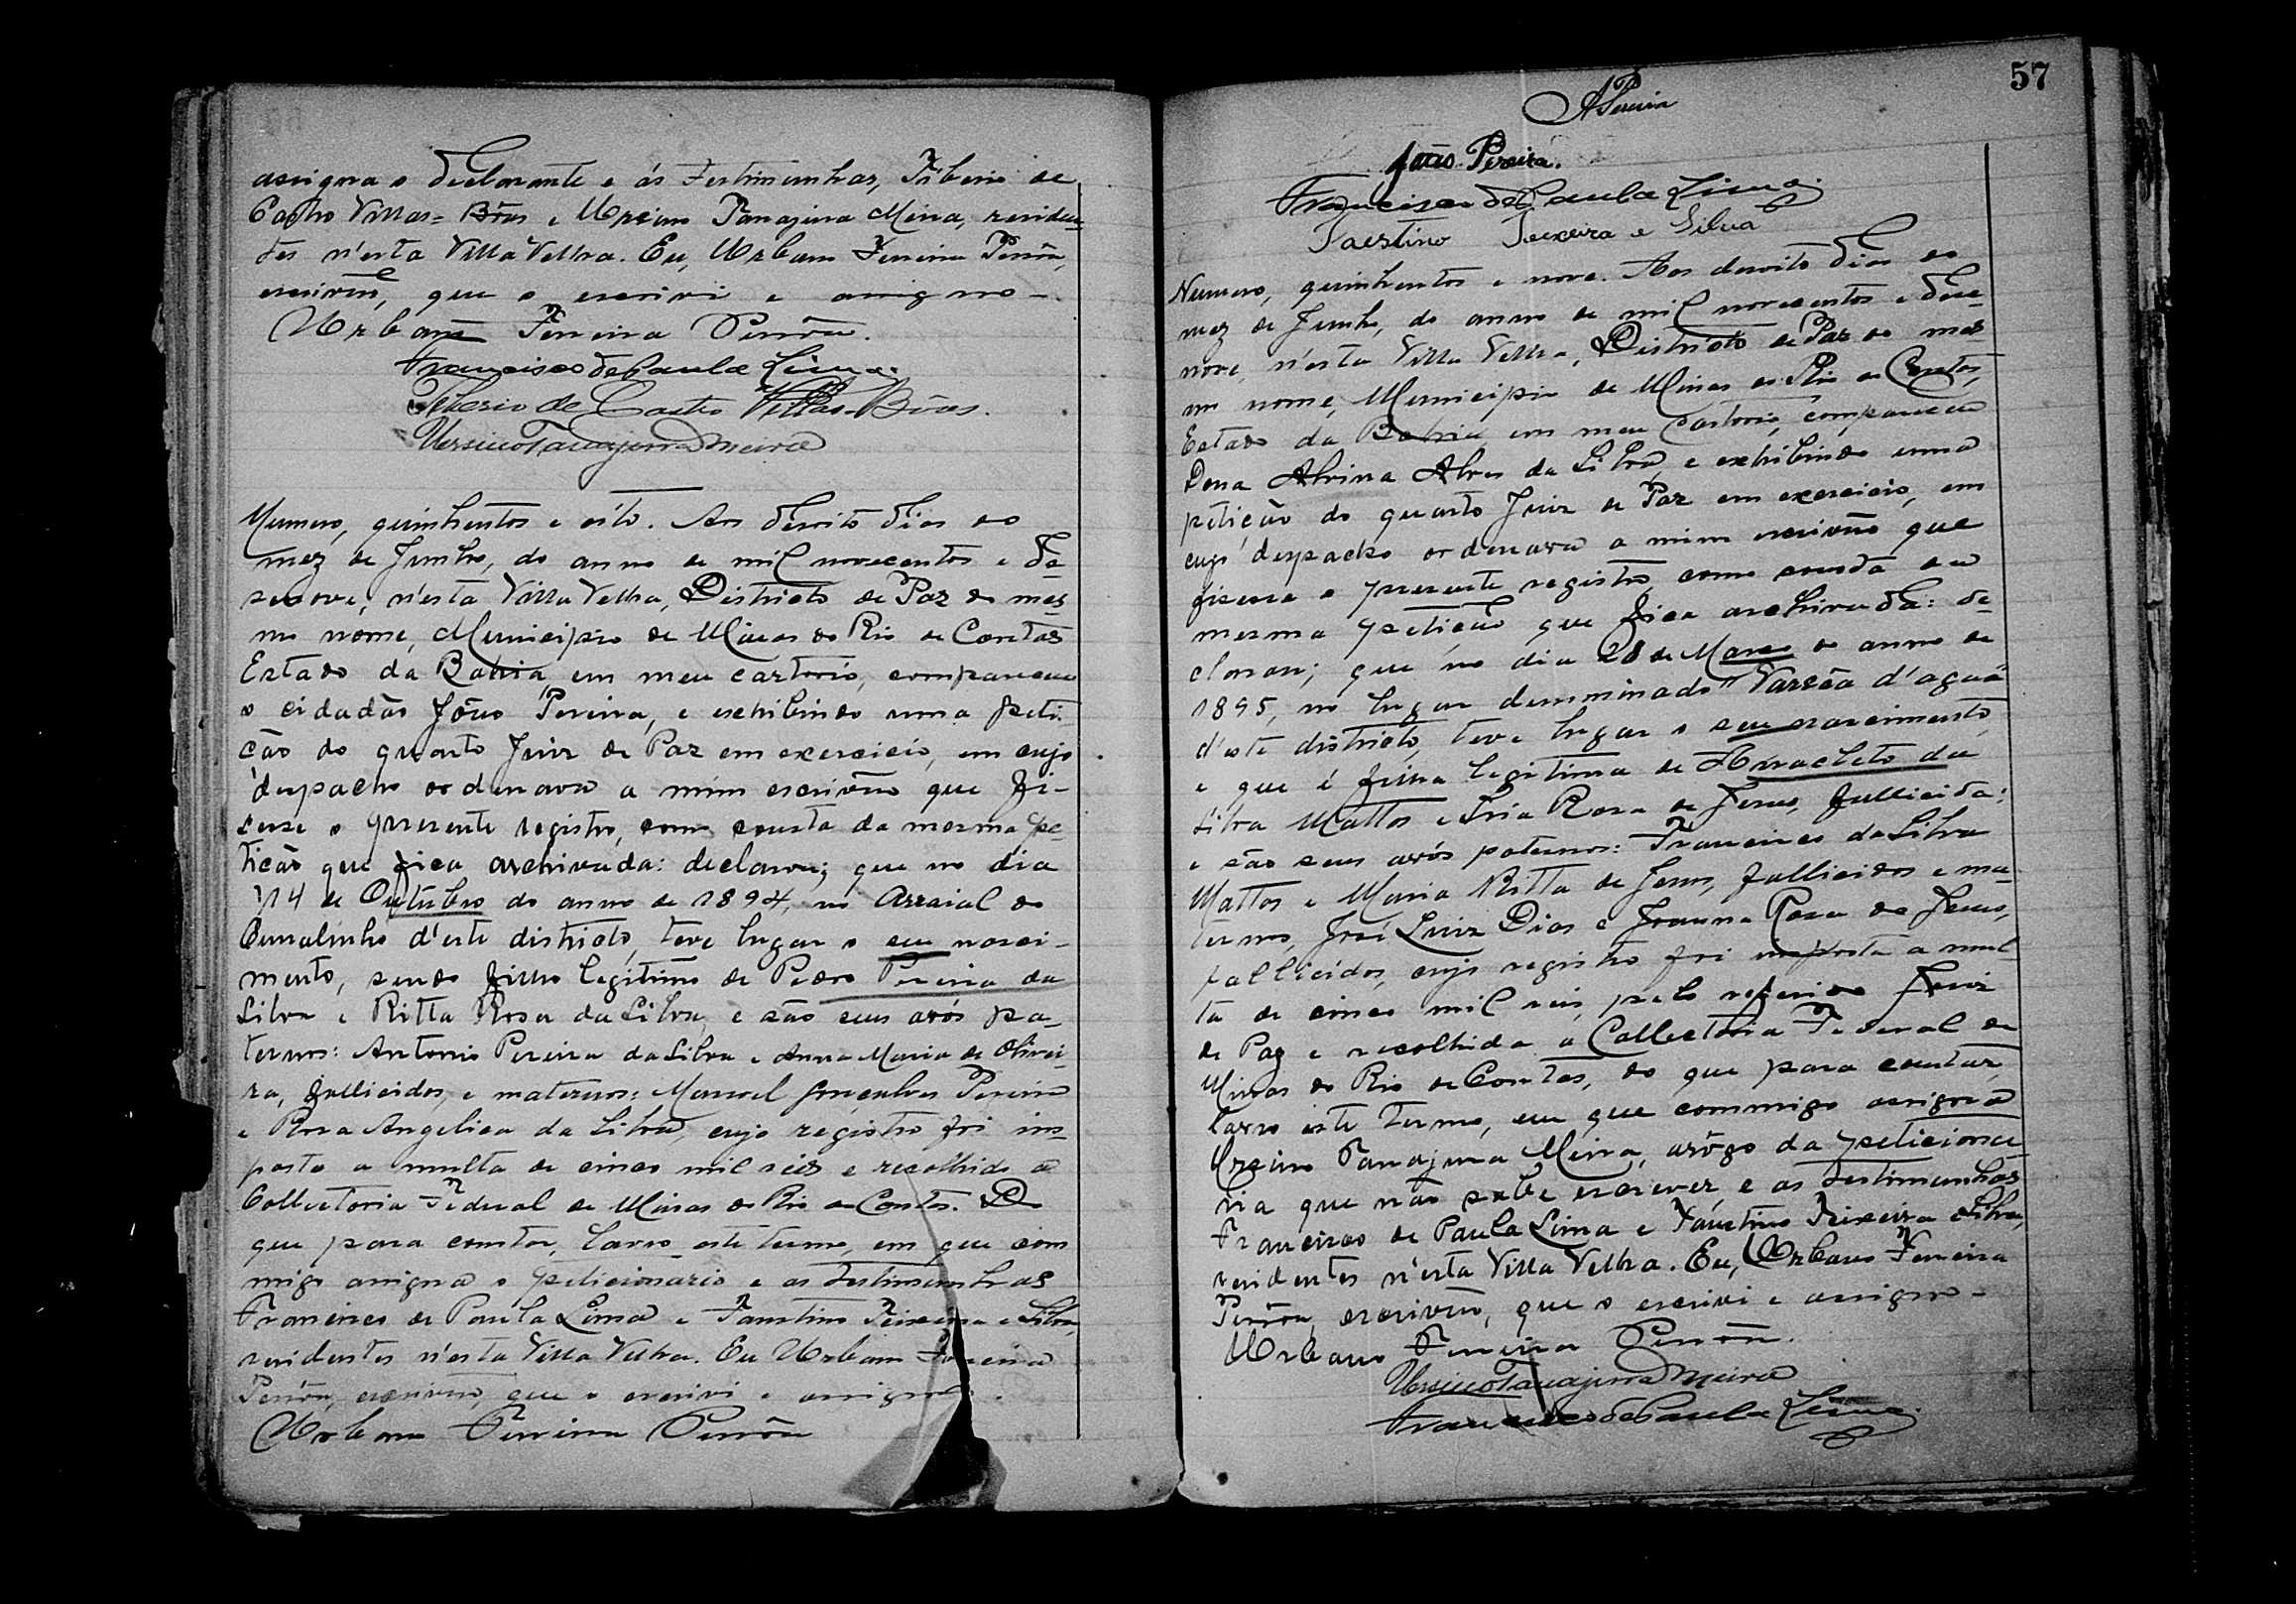 assigna o declarante e ás testimunhas, Tiberio de
Castro Villas=Bôas e Ursino Tanajura Meira, residen-
tes n'esta Villa Velha. Eu, Urbano Ferreira
escrivão, que o escrivi e assigno-.
Urbano Ferreira
Francisco de Paula Lima.
Tiberio de Castro Villas-Bôas.
Ursino Tanajura Meira
Numero, quinhentos e oito. Aos desoito dias do
mez de Junho, do anno de mil novecentos e de-
senove, n'esta Villa Velha, Districto de Paz do mes
mo nome, Municipio de Minas do Rio de Contas
Estado da Bahia, em meu cartorio, compareceu
o cidadão João Pereira, e exhibindo uma peti
ção do quarto Juiz de Paz em exercicio, em cujo
despacho ordenava a mim escrivão que fi-
sesse o presente registro, como consta da mesma pe-
tição que fica archivada: declarou; que no dia
14 de Outubro do anno de 1894, no Arraial do
Curralinho d'este districto, teve lugar o seu nasci-
mento, sendo filho legitimo de Pedro Pereira da
Silva e Ritta Rosa da Silva, e são seus avós pa-
ternos: Antonio Pereira da Silva e Anna Maria de Olivei-
ra, fallicidos, e maternos: Manoel Gonçalves Pereira
e Rosa Angelica da Silva, cujo registro foi im-
posto a multa de cinco mil réis e recolhido a
Collectoria Federal de Minas do Rio de Contas. Do
que para constar, lavro este termo, em que com
migo assigna o peticionario e as testimunhas
Francisco de Paula Lima e Faustino Teixeira e Silva,
residentes n'esta Villa Velha. Eu Urbano Ferreira
escrivão, que o escrivi e assigno.
Urbano Ferreira
57
João Pereira.
Francisco de Paula Lima.
Faestino Teixeira e Silva
Numero, quinhentos e nove. Aos desoito dias do
mez de Junho, do anno de mil novecentos e dese-
nove, n'esta Villa Velha, Districto de Paz do mes
mo nome, Municipio de Minas do Rio de Contas,
Estado da Bahia em meu Cartorio, compareceu
Dona Alvina Alves da Silva, e exhibindo uma
petição do quarto Juiz de Paz em exercicio, em
cujo despacho ordenava a mim escrivão que
fisesse o presente registro, como consta da
mesma petição que fica archivada: de-
clarou; que no dia 28 de Março do anno de
1895, no lugar denominado "Varsea d'agua"
d'este districto, teve lugar o seu nascimento,
e que é filha legitima de Anacleto da
Silva Mattos e Rosa de Jesus, fallicida;
e são seus avós paternos: Francisco da Silva
Mattos e Maria Ritta de Jesus, fallicidos e ma-
ternos, José Luiz Dias e Joanna Rosa de Jesus,
fallicidos, cujo registro foi imposta a mul
ta de cinco mil reis, pelo referido Juiz
de Paz e recolhida a Collectoria Federal de
Minas do Rio de Contas, do que para constar,
lavro este termo, em que commigo assigna
Ursino Tanajura Meira, arôgo da peticiona-
ria que não sabe escrever, e as testimunhas
Francisco de Paula Lima e Faustino Teixeira e Silva,
residentes n'esta Villa Velha. Eu, Urbano Ferreira
escrivão, que o escrivi e assigno-
Urbano Ferreira
Ursino Tanajura Meira
Francisco de Paula Lima.